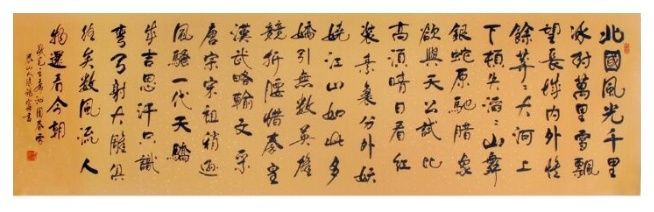 北國風光千里
冰封萬里雪飄
望長城內外惟
餘莽〻大河上
下頓失滔〻山舞
銀蛇原馳臘象
欲與天公試比
高須晴日看紅
裝素裹分外妖
嬈江山如此多
嬌引無數英雄
競折腰惜秦皇
漢武略輸文采
唐宗宋祖稍遜
風騷一代天驕
成吉思汗只識
彎弓射大雕俱
往矣數風流人
物還看今朝
毛主席沁園春雪